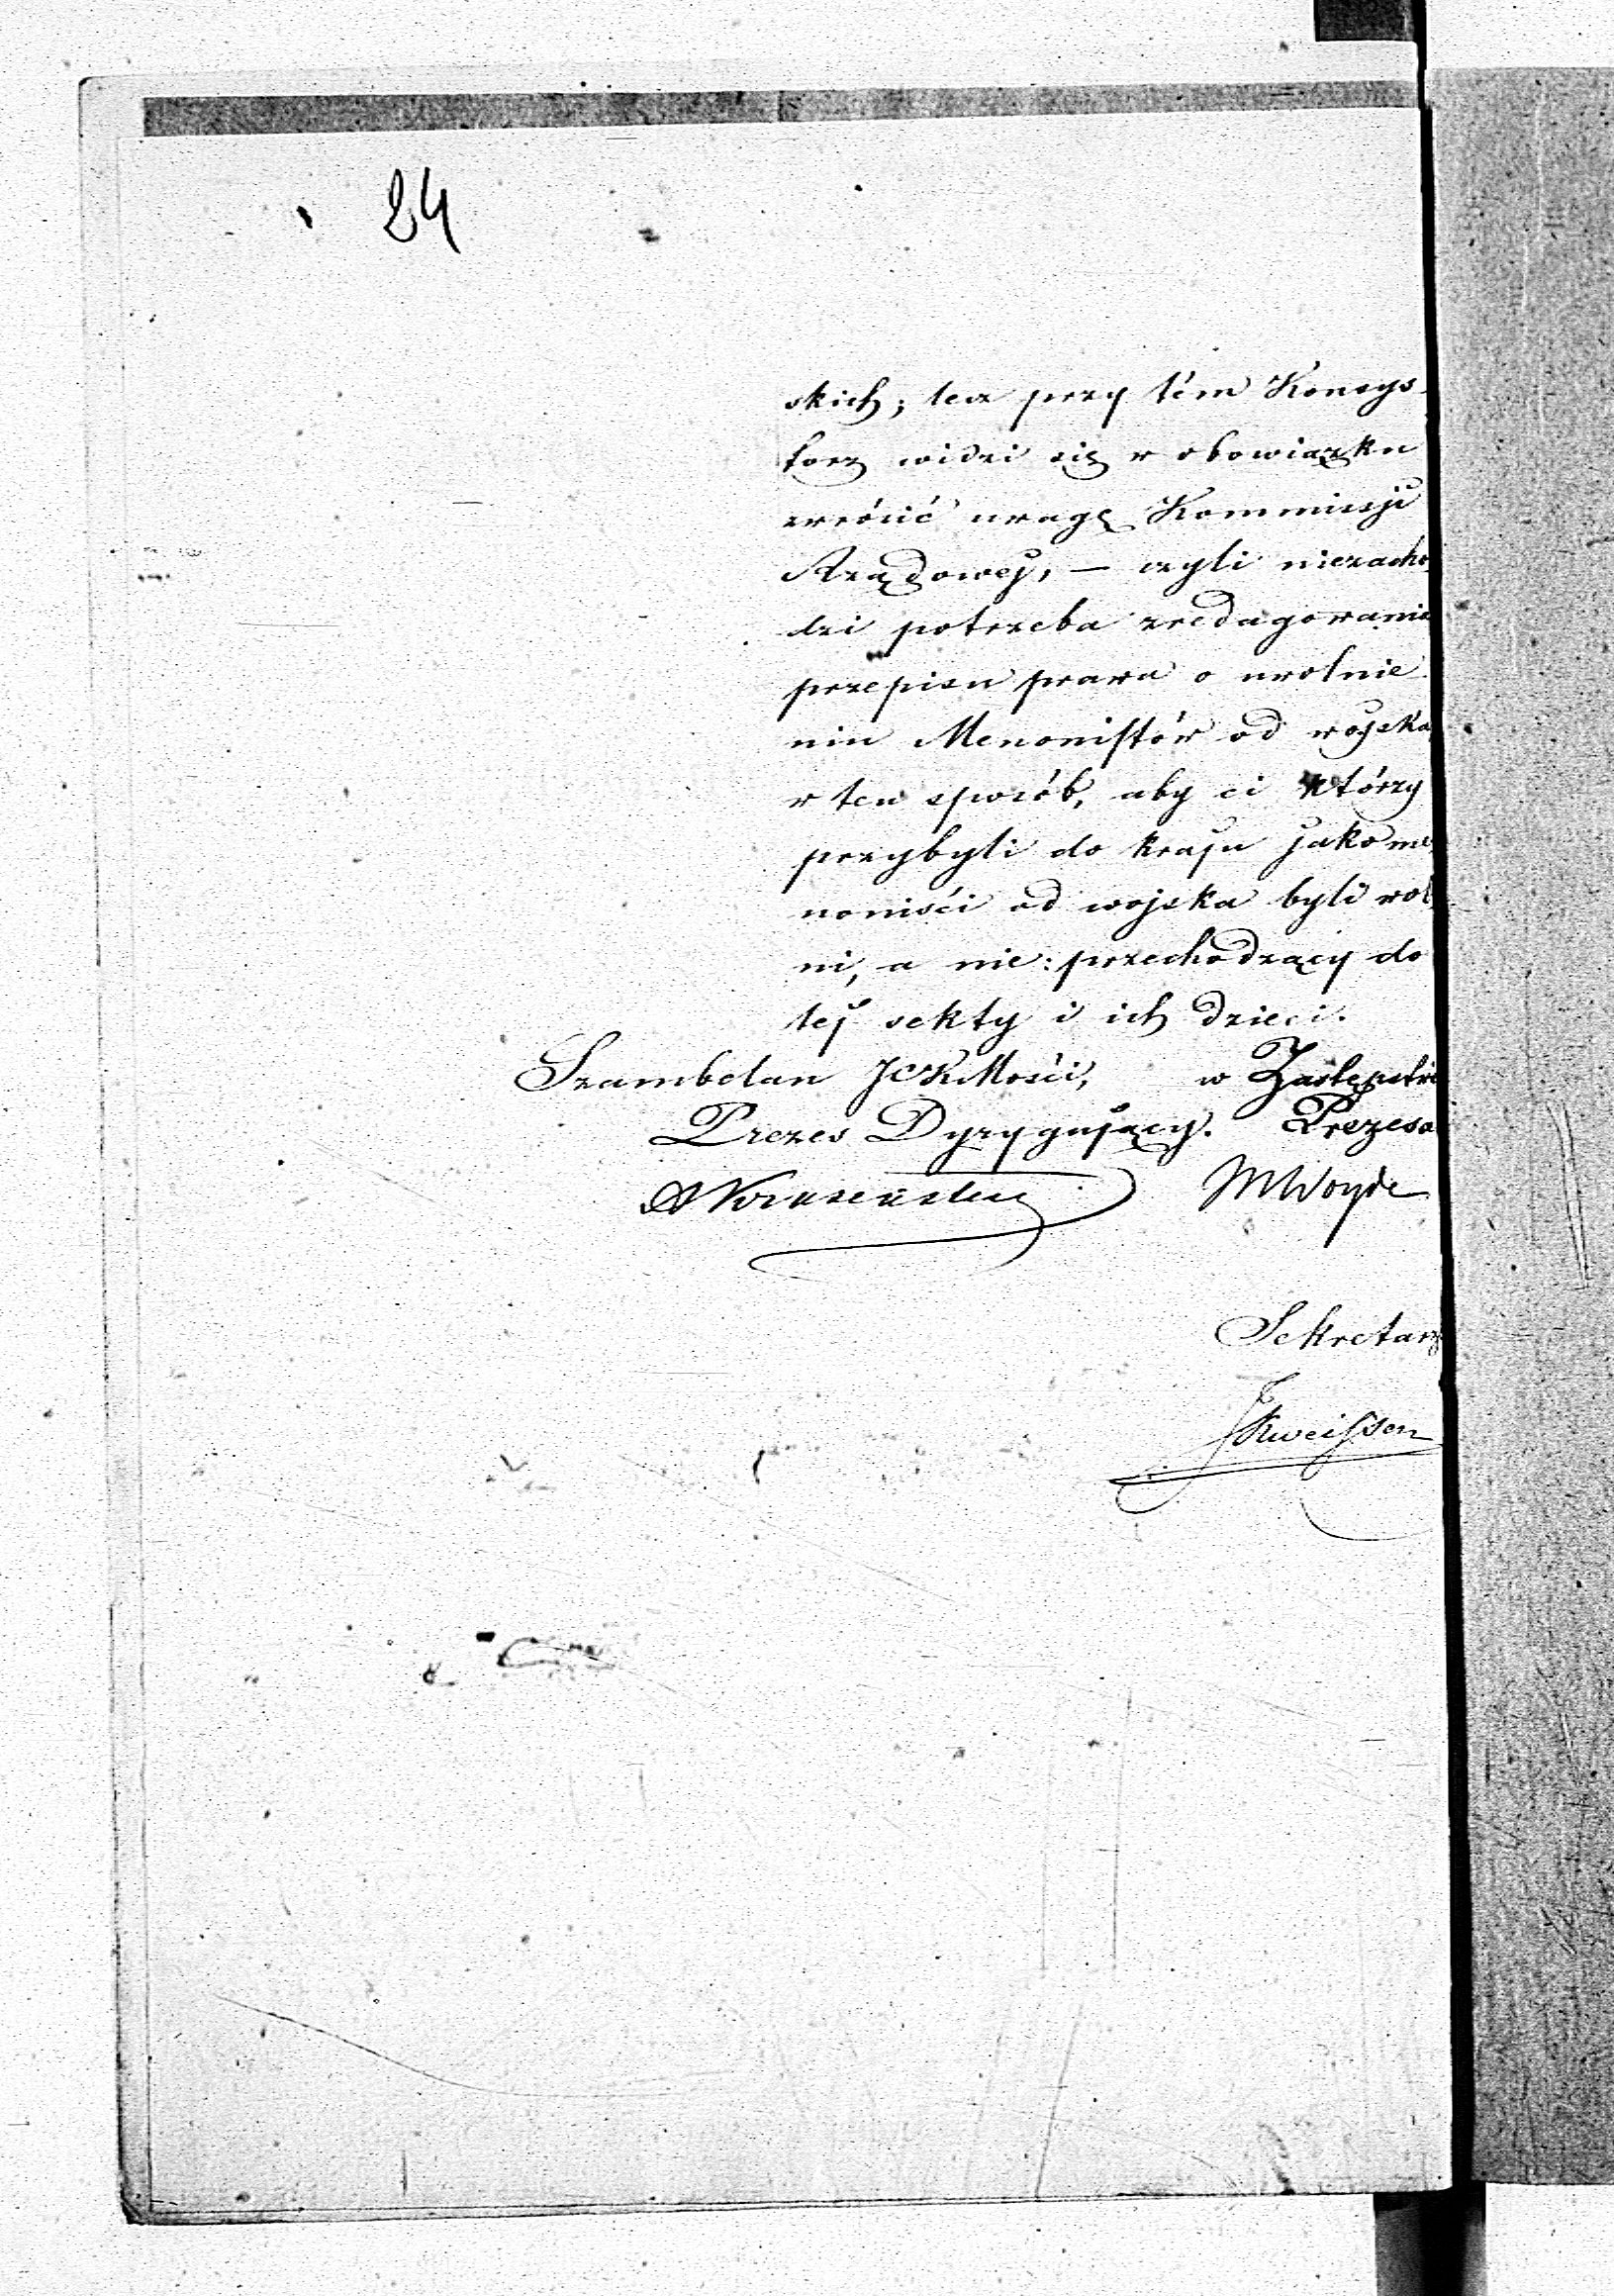 84
skich; lecz przy tém Konsys-
torz widzi się w obowiązku
zwrócić uwagę Kommissji
Rządowej, — czyli niezacho-
dzi potrzeba zredagowania
przepisu prawa o uwolnie-
niu Menonistów od wojska,
w ten sposób, aby ci którzy
przybyli do kraju jako me-
noniści od wojska byli wol-
ni, a nie: przechodzący do
tej sekty i ich dzieci.
Szambelan JCKMości, w Zastępstwie
Prezes Dyrygujący. Prezesa
MWoyde
Sekretarz